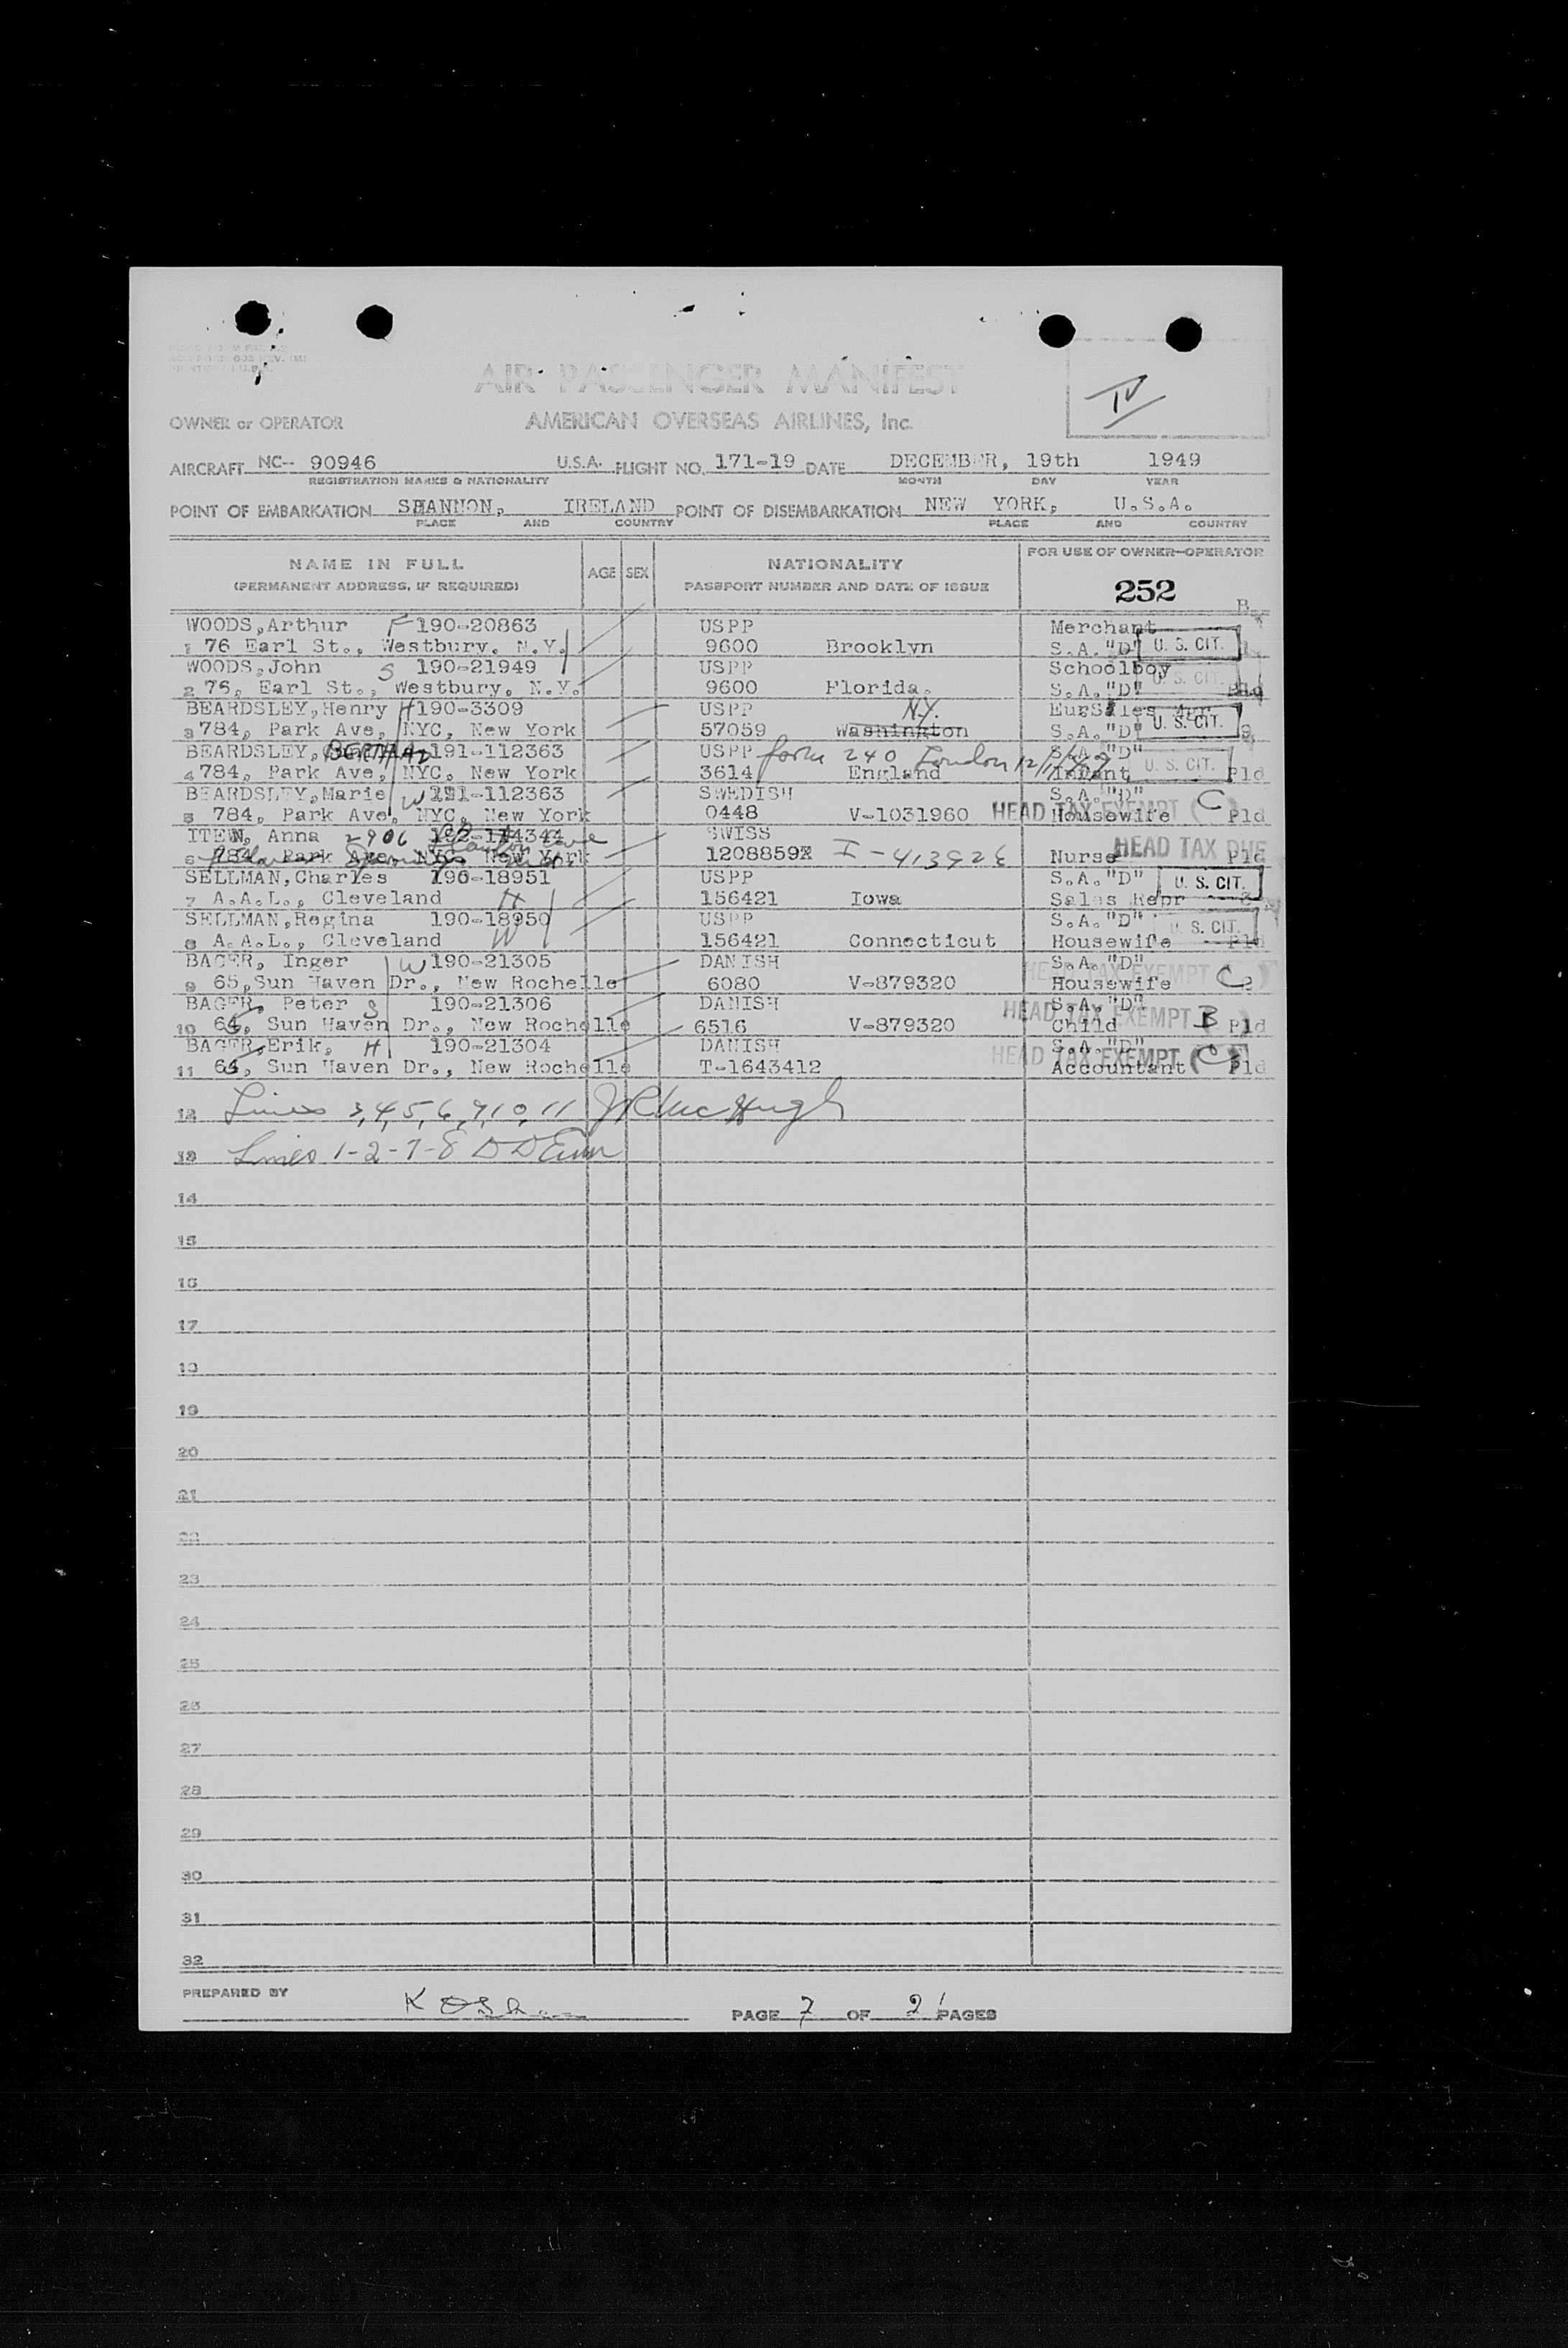 AIR PASSENGER MANIFEST
IV
OWNER or OPERATOR AMERICAN OVERSEAS AIRLINES, Inc.
AIRCRAFT NC-- 90946 U.S.A. FLIGHT NO. 171-19 DATE DECEMBER, 19th 1949
REGISTRATION MARKS & NATIONALITY MONTH DAY YEAR
POINT OF EMBARKATION SHANNON, IRELAND POINT OF DISEMBARKATION NEW YORK, U.S.A.
PLACE AND COUNTRY PLACE AND COUNTRY
NAME IN FULL AGE SEX NATIONALITY FOR USE OF OWNER-OPERATOR
(PERMANENT ADDRESS, IF REQUIRED) PASSPORT NUMBER AND DATE OF ISSUE 252
WOODS, Arthur F 190-20863 USPP Merchant
1 76 Earl St., Westbury. N.Y. 9600 Brooklyn S.A."D" U. S. CIT.
WOODS, John S 190-21949 USPP Schoolboy
2 76, Earl St., Westbury. N.Y. 9600 Florida. S.A."D" U. S. CIT.
BEARDSLEY, Henry H 190-3309 USPP N.Y. EurSales Mgr
3 784, Park Ave, NYC, New York 57059 Washington S.A."D" U. S. CIT.
BEARDSLEY, BERTHA 191-112363 USPP form 240 London S.A."D"
4 784, Park Ave, NYC, New York 3614 England Infant U. S. CIT. Pld
BEARDSLEY, Marie W 191-112363 SWEDISH S.A."D"
5 784, Park Ave, NYC, New York 0448 V-1031960 HEAD TAX EXEMPT (C) Housewife Pld
ITEN, Anna 2906 SWISS
6 784, Park Ave, NYC, New York 1208859 Nurse HEAD TAX DUE Pld
SELLMAN, Charles 190-18951 USPP S.A."D" U. S. CIT.
7 A.A.L., Cleveland H 156421 Iowa Sales Repr
SELLMAN, Regina 190-18950 USPP S.A."D" U. S. CIT.
8 A.A.L., Cleveland W 156421 Connecticut Housewife Pld
BAGER, Inger W 190-21305 DANISH S.A."D"
9 65, Sun Haven Dr., New Rochelle 6080 V-879320 HEAD TAX EXEMPT (C) Housewife
BAGER, Peter S 190-21306 DANISH S.A."D"
10 65, Sun Haven Dr., New Rochelle 6516 V-879320 HEAD TAX EXEMPT (B) Child Pld
BAGER, Erik, H 190-21304 DANISH S.A."D"
11 65, Sun Haven Dr., New Rochelle T-1643412 HEAD TAX EXEMPT (C) Accountant Pld
12 Lines 3,4,5,6,9,10,11 J R McHugh
13 Lines 1-2-7-8
14
15
16
17
18
19
20
21
22
23
24
25
26
27
28
29
30
31
32
PREPARED BY PAGE 7 OF PAGES